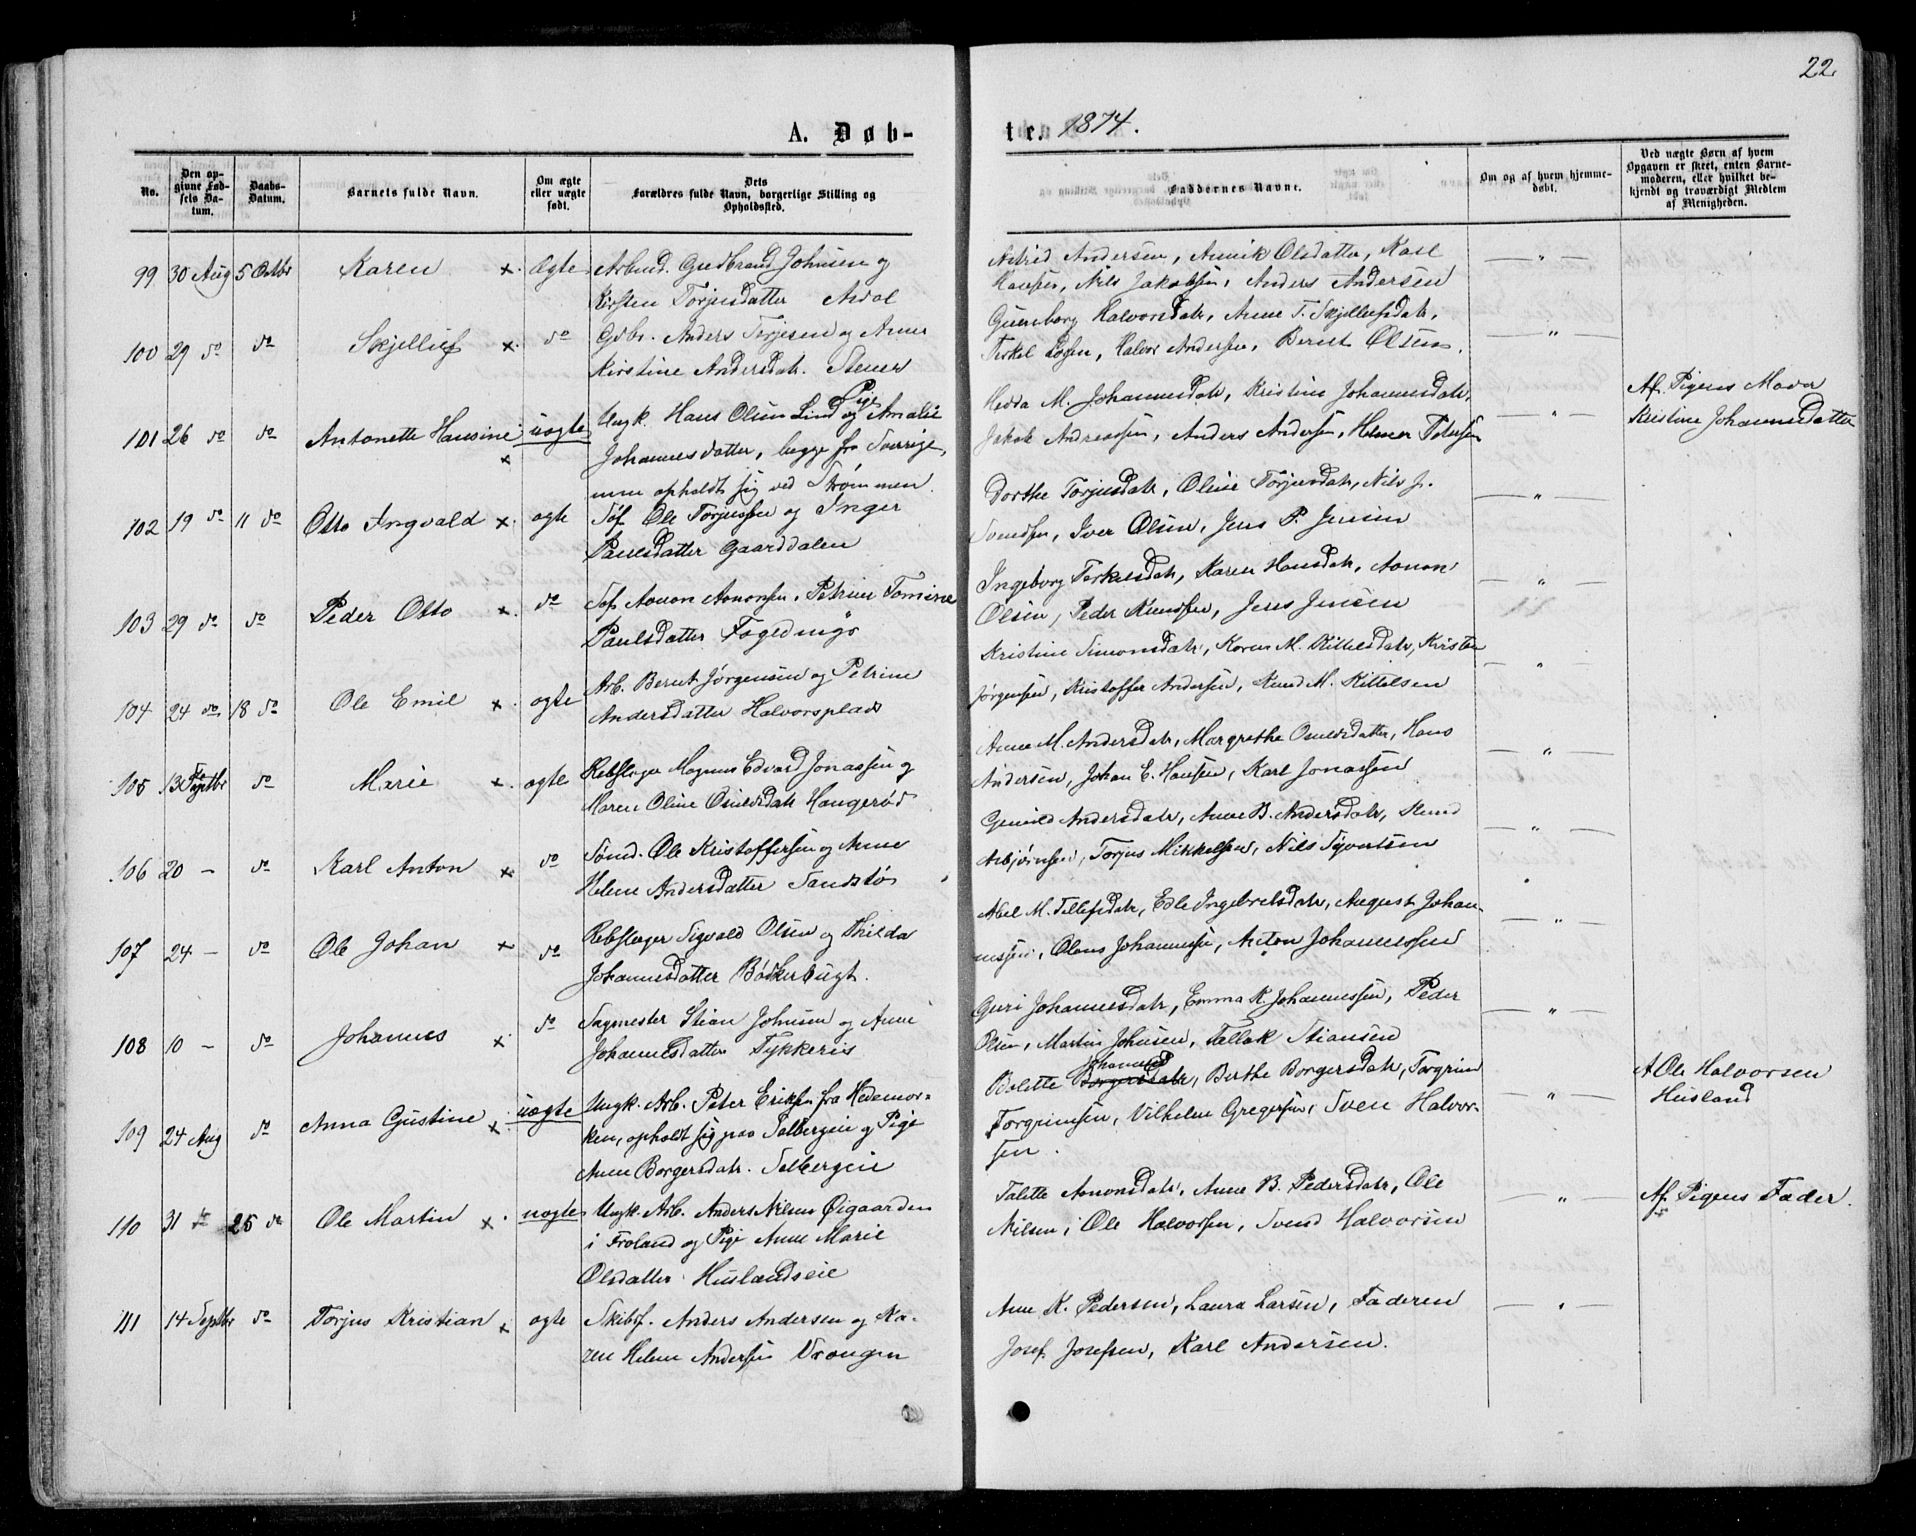 22.
A. Døb-
te. 1874.
No.
Den op-
givne Fød-
sels Da-
tum.
Daabs-
Datum.
Barnets fulde Navn.
Om ægte
eller uægte
født.
Dets
Forældres fulde Navn, borgerlige Stilling og
Opholdssted.
Faddernes Navne.
Om og af hvem hjemme-
døbt.
Ved uægte Børn af hvem
Opgaven er skeet, enten Barne-
moderen, eller hvilket be-
kjendt og troværdigt Medlem
af Menigheden.
99 30 Aug 5 Octbr Karen x. Ægte Arbmd. Gudbrand Johnsen og
Kirsten Torjusdatter
Astrid Andersen, Olsdatter, Karl
Hansen, Nils Jakobsen, Anders Andersen
— " —
100 29 do do Skjellief x. do Gdbr. Anders Torjesen og Anne
Kirstine Andersdatr.
Halvorsdatr, Anne T. Skjellefsdatr,
Terkel Halvor Andersen, Bernt Olsen.
— " —
101 26 do do Antonette Hansine x uægte Ungk. Hans Olsen Lind og Pige Amalie
Johannesdatter, begge fra Sverrige,
opholdt sig ved Strømmen.
Hedda M. Johannesdatr, Kristine Johannesdatr,
Jakob Andreassen, Anders Andersen, Helmer Petersen
— " —
Af Pigens Moder
Kristine Johannesdatter
102 19 do 11 do Otto Ingvald x. ægte Søf. Ole Torjussen og Inger
Paulsdatter Gaarddalen
Dorthe Torjusdatr, Oline Torjusdatr, Nils J.
Svendsen, Iver Olsen, Jens P. Jensen
— " —
103 29 do do Peder Otto x. do Søf. Aanon Aanonsen, Petrine Tomine
Paulsdatter
Ingeborg Terkelsdatr, Karen Hansdatr, Aanon
Olsen, Peder Knudsen, Jens Jensen
— " —
104 24 do 18 do Ole Emil x. ægte Arb. Bernt Jørgensen og Petrine
Andersdatter Halvorsplads
Kristine Simonsdatr, Karen M. Kittelsdatr, Kirsten
Jørgensen, Kristoffer Andersen, Knud M. Kittelsen
— " —
105 13 Septbr do Marie x. ægte Rebslager Magnus Edvard Jonassen og
Maren Oline Osuldsdatr Haugerød
Anne M. Andersdatr, Margrethe Osuldsdatter, Hans
Andersen, Johan E. Hansen, Karl Jonassen
— " —
106 20 — do Karl Anton x. do Sømd. Ole Kristoffersen og Anne
Helene Andersdatter Sandstø
Gunild Andersdatr, Anne B. Andersdatr, Knud
Asbjørnsen, Torjus Mikkelsen, Nils Syvertsen
— " —
107 24 — do Ole Johan x do Rebslager Sigvald Olsen og Thilda
Johannesdatter Bødkerbugt.
Abel M. Tellefsdatr, Edle Ingebretsdatr, August Johan-
nessen, Olaus Johannessen, Anton Johannessen
— " —
108 10 — do Johannes x. do Sagmester Stian Johnsen og Anne
Johannesdatter Tykkeris
Guri Johannesdatr, Emma K. Johannessen, Peder
Olsen, Martin Johnsen, Tallak Stiansen
— " —
109 24 Aug do Anna Gustine x. uægte Ungk. Arb. Peter Eriksen fra Hedemar-
ken, opholdt sig paa Solbergeie og Pige
Anne Borgersdatr. Solbergeie
Bolette Borgersdatr, Berthe Borgersdatr, Torgrim
Torgrimsen, Vilhelm Gregersen, Sven Halvor-
sen.
— " —
A Ole Halvorsen
Husland
110 31 do 25 do Ole Martin x. uægte Ungk. Arb. Anders Nilsen Øigaarden
i Froland og Pige Anne Marie
Olsdatter Huslandseie
Talette Aanonsdatr, Anne B. Pedersdatr, Ole
Nilsen, Ole Halvorsen, Svend Halvorsen
— " —
Af Pigens Fader.
111 14 Septbr do Torjus Kristian x ægte Skibsf. Anders Andersen og Ka-
ren Helene Andersen Vrangen
Ane K. Pedersen, Laura Larsen, Faderen
Josef Josefsen, Karl Andersen.
— " —